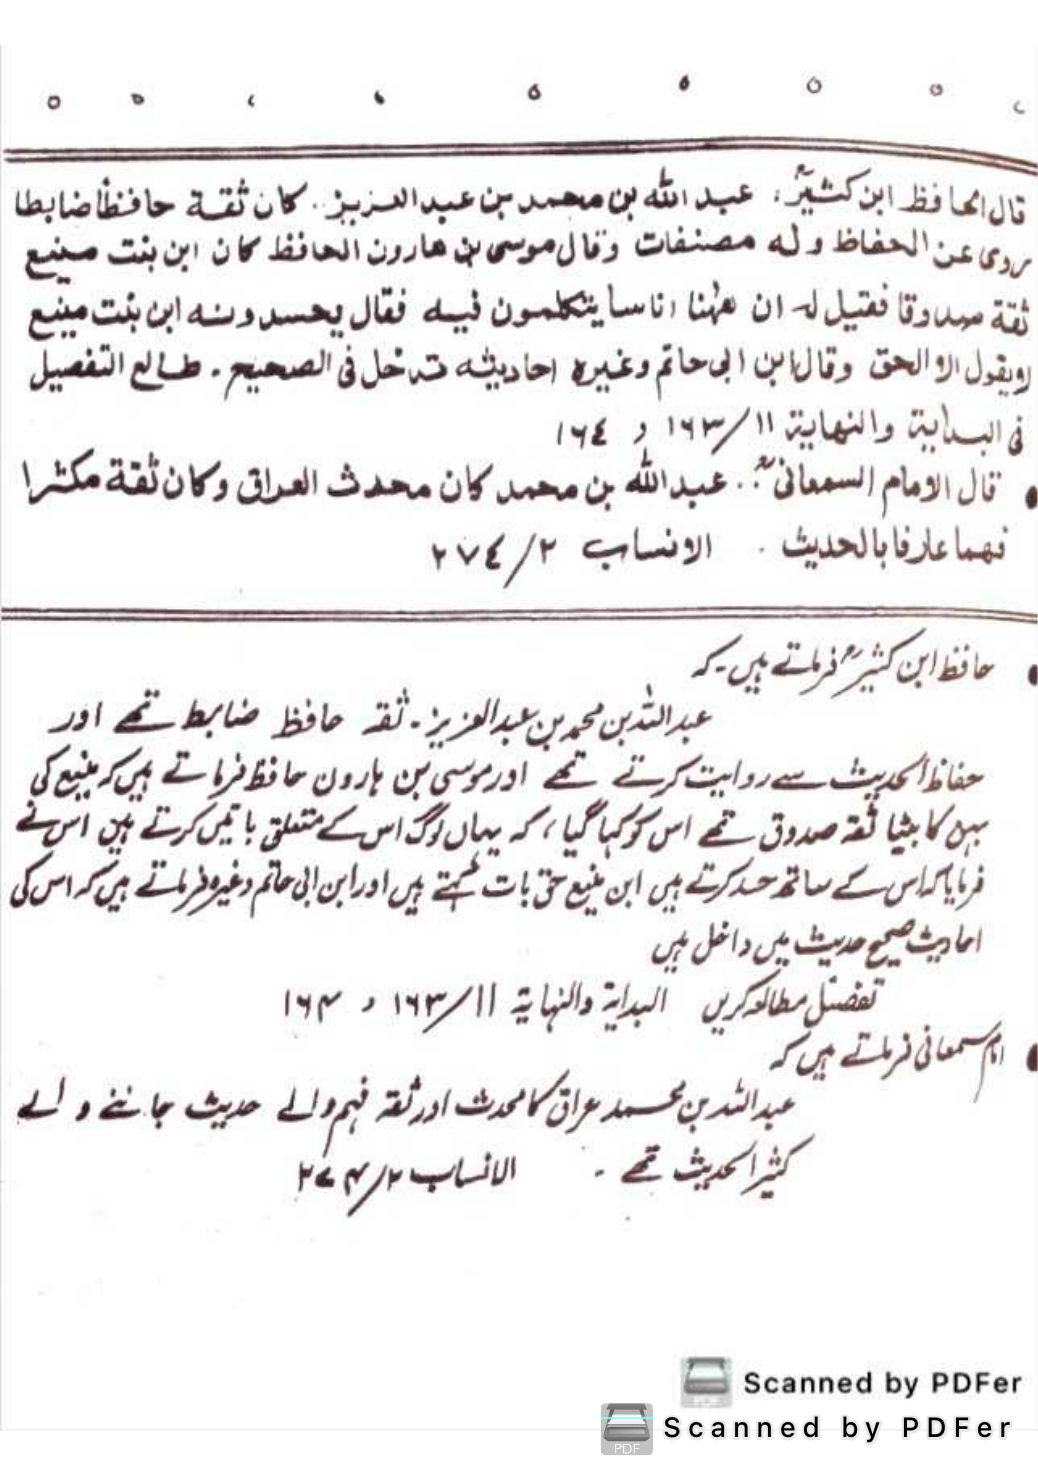 قال الحافظ ابن كثيرؒ: عبد الله بن محمد بن عبد العزيز.. كان ثقة حافظا ضابطا
روى عن الحفاظ وله مصنفات وقال موسى بن هارون الحافظ كان ابن بنت منيع
ثقة صدوقا فقيل له ان ههنا اناسا يتكلمون فيه فقال يحسدونه ابن بنت منيع
لا يقول الا الحق وقال ابن ابى حاتم وغيره احاديثه تدخل فى الصحيح . طالع التفصيل
فى البداية والنهاية ١١/١٦٣ و ١٦٤
• قال الامام السمعانىؒ :. عبد الله بن محمد كان محدث العراق وكان ثقة مكثرا
فهما عارفا بالحديث . الانساب ٢/٢٧٤
• حافظ ابن کثیرؒ فرماتے ہیں۔ کہ
عبد اللہ بن محمد بن عبد العزیز۔ ثقہ حافظ ضابط تھے اور
حفاظ الحدیث سے روایت کرتے تھے اور موسی بن ہارون حافظ فرماتے ہیں کہ منیع کی
بہن کا بیٹا ثقہ صدوق تھے اس کو کہا گیا، کہ یہاں لوگ اس کے متعلق باتیں کرتے ہیں اس نے
فرمایا کہ اس کے ساتھ حسد کرتے ہیں ابن منیع حق بات کہتے ہیں اور ابن ابی حاتم وغیرہ فرماتے ہیں کہ اس کی
احادیث صحیح حدیث میں داخل ہیں
تفصیل مطالعہ کریں البدایة والنہایة ۱۱/۱۶۳ و ۱۶۴
• امام سمعانی فرماتے ہیں کہ
عبد اللہ بن محمد عراق کا محدث اور ثقہ فہم والے حدیث جاننے والے
کثیر الحدیث تھے ۔ الانساب ۲/۲۷۴
Scanned by PDFer
Scanned by PDFer
PDF